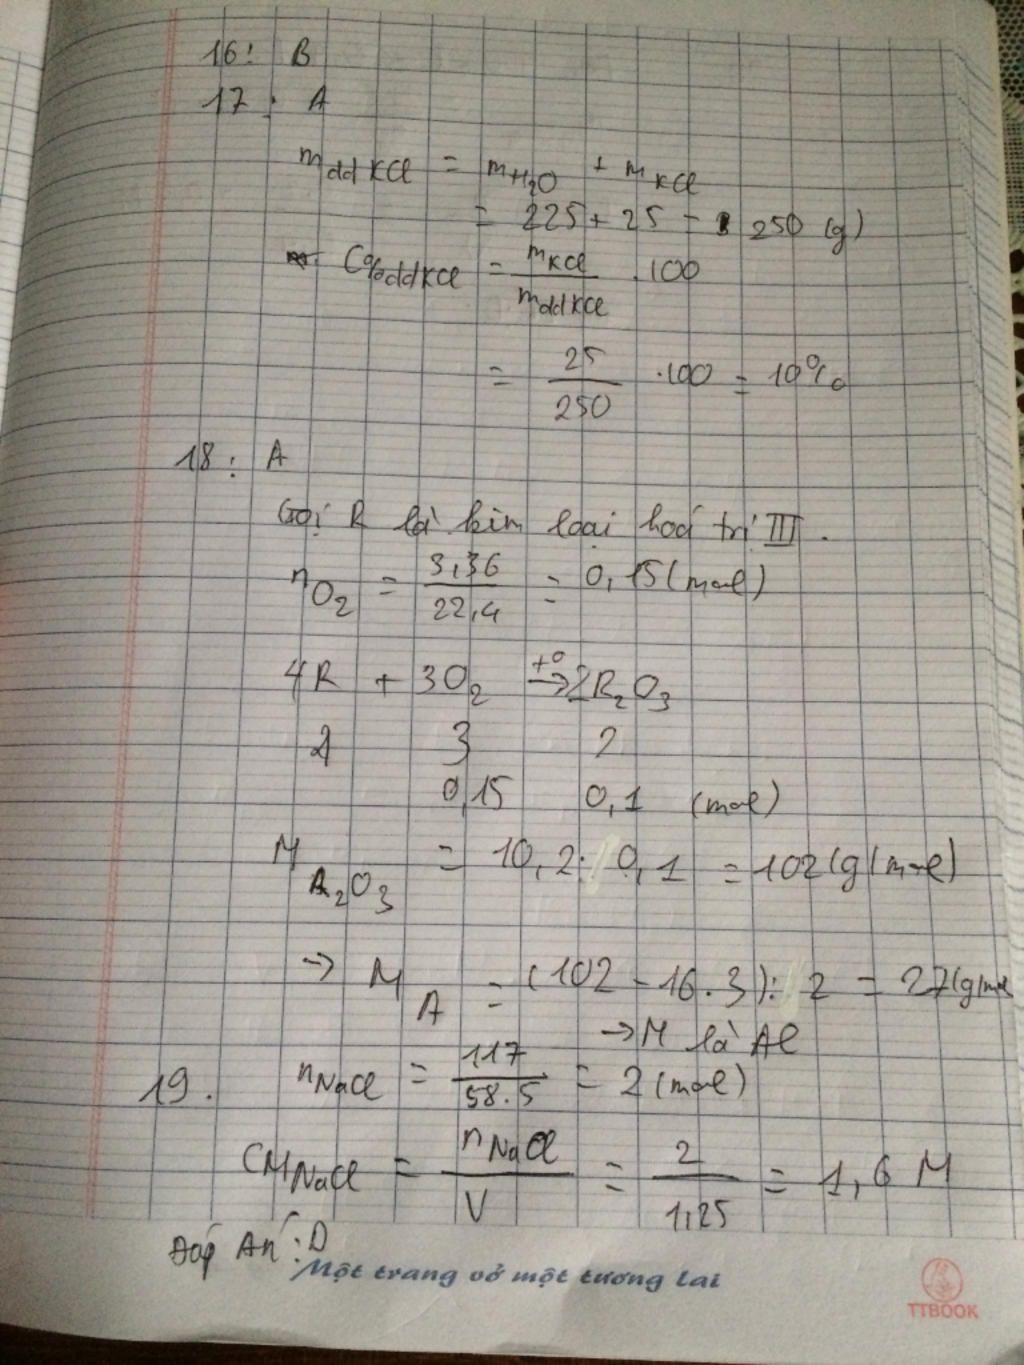 16: B
17: A
mddKCl = mH₂O + mKCl
= 225 + 25 = 250 (g)
C%ddKCl = mKCl / mddKCl . 100
= 25 / 250 . 100 = 10%
18: A
Gọi R là kim loại hoá trị III.
nO₂ = 3,36 / 22,4 = 0,15 (mol)
4R + 3O₂ t⁰→ 2R₂O₃
4 3 2
0,15 0,1 (mol)
M A₂O₃ = 10,2 : 0,1 = 102 (g/mol)
→ M A = (102 - 16.3) : 2 = 27 (g/mol
→ M là Al
19. nNaCl = 117 / 58.5 = 2 (mol)
CM NaCl = nNaCl / V = 2 / 1,25 = 1,6 M
Đáp Án : D
Một trang vở một tương lai
TTBOOK